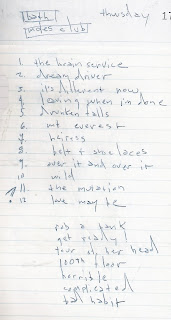 bath
moles club
thursday 17
1. the brain service
2. dream driver
3. it's different now
4. leaving when is done
5 drunken falls
6 mt everest
7 access
8 belt & shoe laces
9 over it and over it
10 mild
11. the mutation
12 love may be
rob a bank
get ready!
four on her head
100th floor
horrible
complicated
tall habit